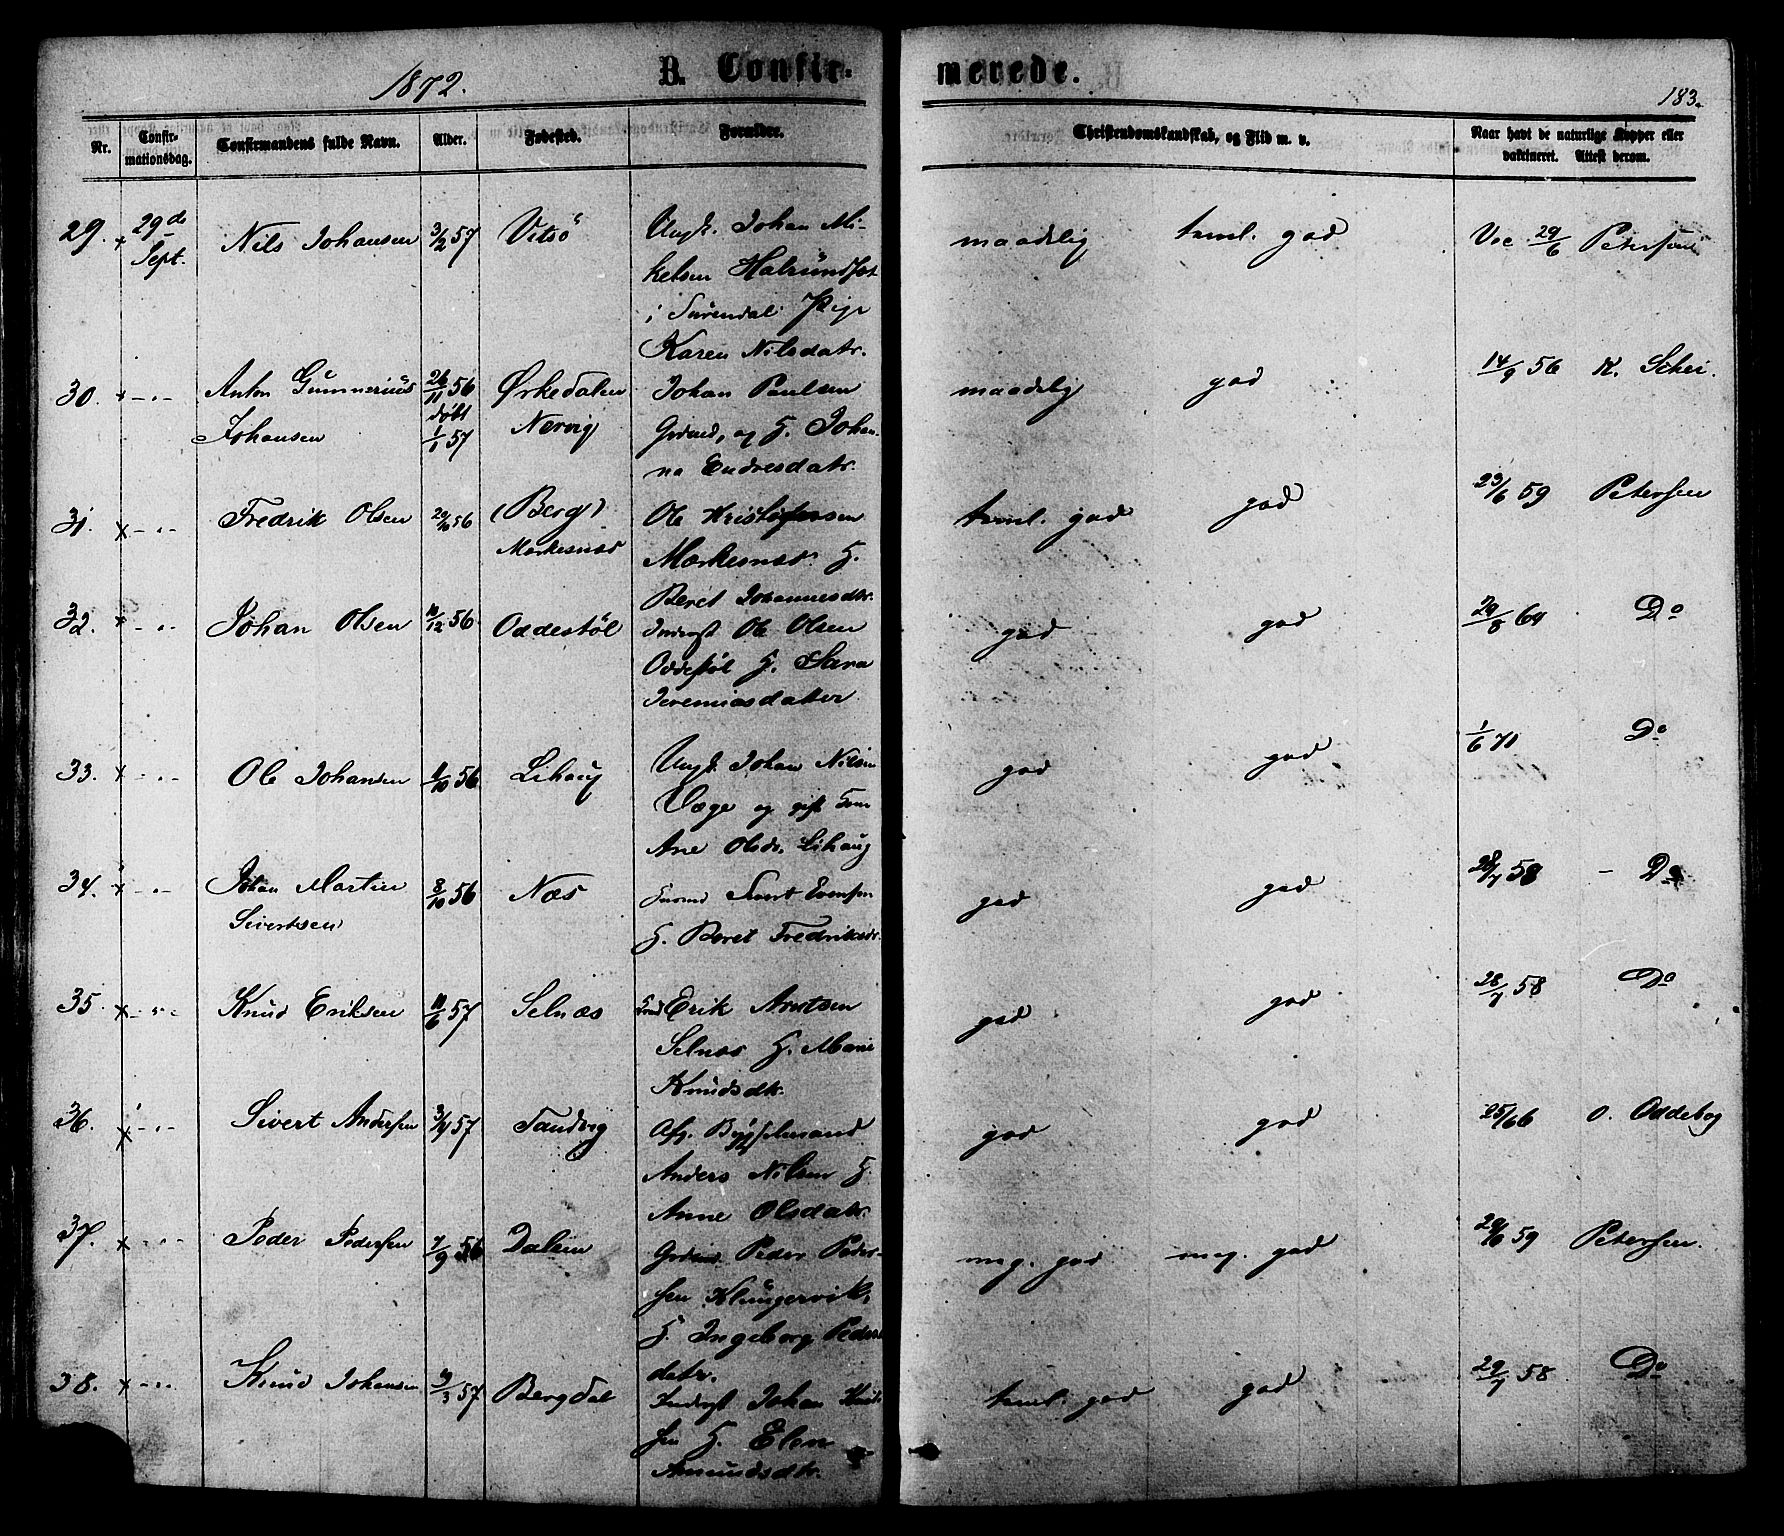 1872.
B. Confirmerede.
183.
Nr. Confirmationsdag. Confirmandens fulde Navn. Alder. Fødested. Forældre. Christendomskundskab, og Flid m. v. Naar havt de naturlige Kopper eller vakcineret. Attest derom.
29. x 29de Sept. Nils Johansen 3/2 57 Vitsö Ungk. Johan Mi- maadelig teml. god Vac 29/6 Petersen
kelsen Halsundset
i Surendal Pige
Karen Nilsdatr.
30. x - " - Anton Gummerius 26/11 56 Ørkedalen Johan Paulsen maadelig god 14/9 56 K. Schei.
Johansen døbt 1/1 57 Nærvig Grdmd, og H. Johan-
na Endresdatr.
31. x - " - Fredrik Olsen 56 (Berg) Ole Kristofersen teml. god god 23/6 59 Petersen
Mærkesnæs Mærkesnæs H.
Beret Johannesdtr.
32. x - " - Johan Olsen 10/12 56 Oddestöl Inderst Ole Olsen god god 29/8 60 Do
Oddestöl H. Sara
Jeremiasdatter
33. x - " - Ole Johansen 56 Lihaug Ungk. Johan Nilsen god god 1/6 71 Do
Vaage og gift Kone
Ane Olsdr. Lihaug
34. x - " - Johan Martin 8/10 56 Næs Sivert Evensen god god 28/7 58 - Do
Sivertsen H. Beret Fredriksdr.
35. x - " - Knud Eriksen 11/6 57 Selnæs Erik Arntsen god god 28/7 58 Do
Selnæs H. Marie
Knudsdtr.
36. x - " - Sivert Andersen 57 Sandvig Afg. Bygselmand god god 25/6 66 O. Oddebog
Anders Nilsen H.
Anne Olsdatr.
37. x - " - Peder Pedersen 7/9 56 Dalen Grdmd Peder Peder- meg. god meg. god 59 Petersen.
sen Klungervik,
H. Ingeborg Peders
datr.
38. x - " - Knud Johansen 57 Bergdal Inderst Johan Knud- teml. god god 29/7 58 Do
sen H. Elen
Amundsdtr.